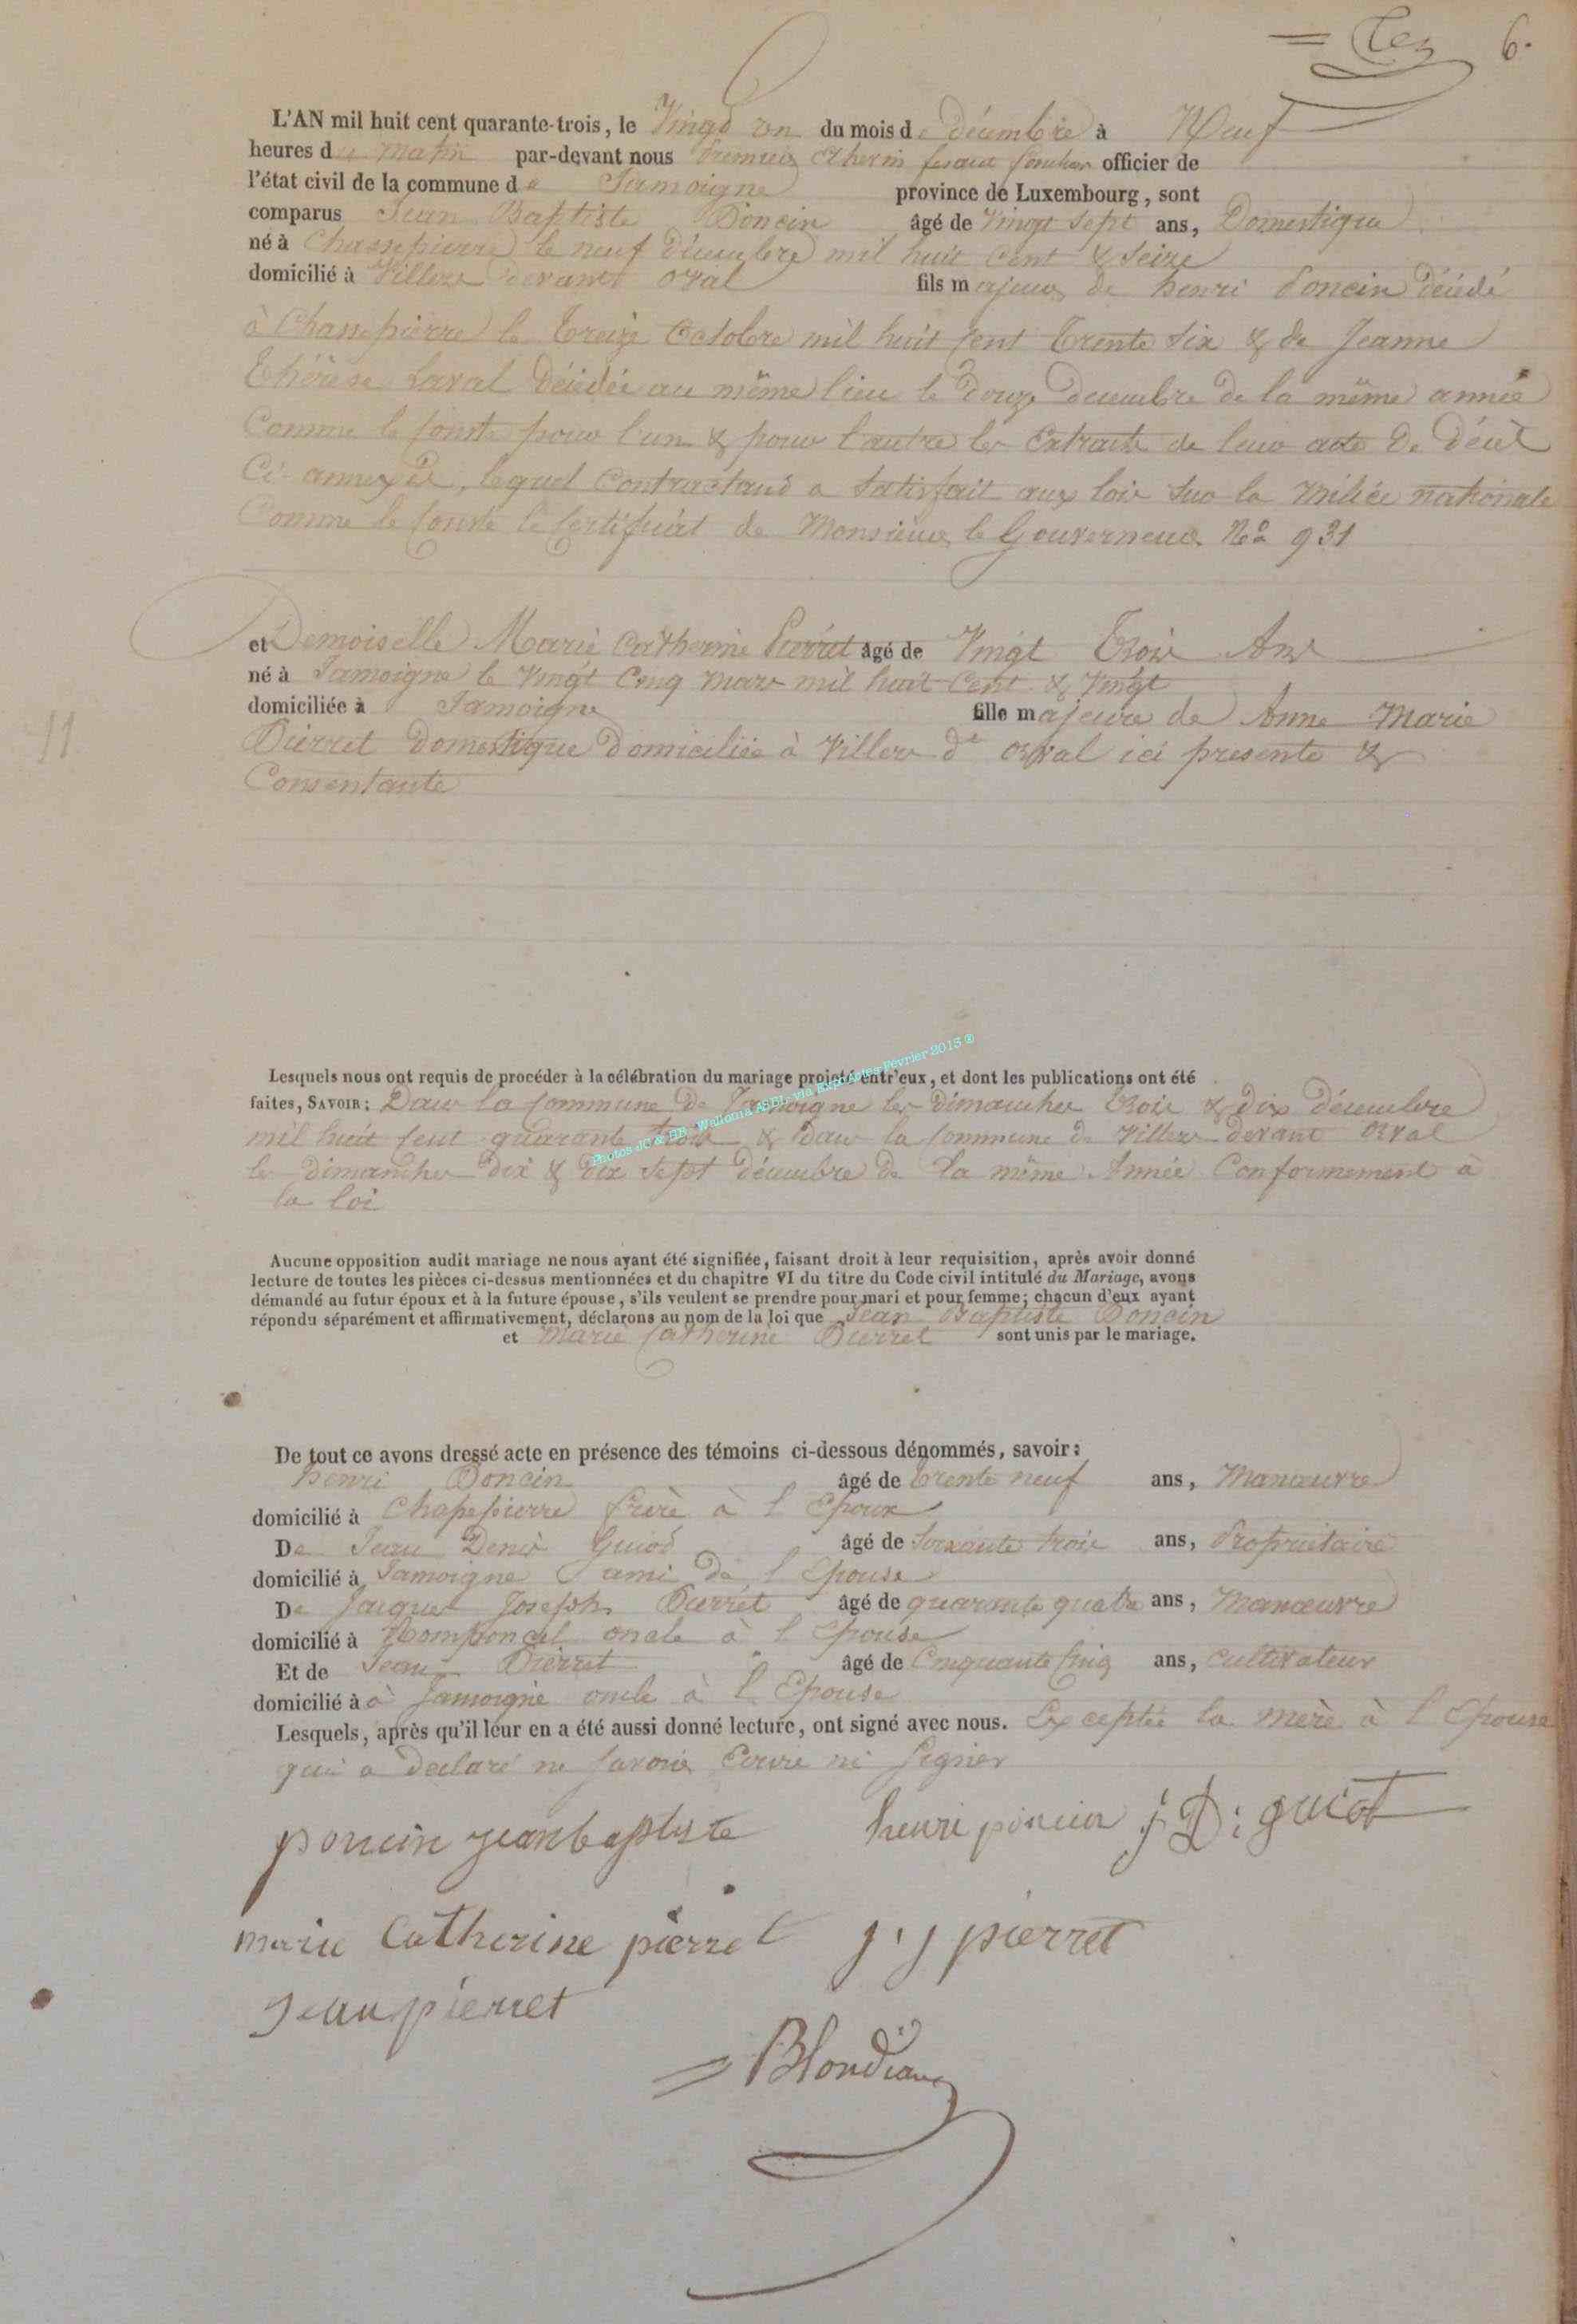 6.
L'AN mil huit cent quarante-trois, le Vingt un du mois de décembre à Neuf
heures du matin par-devant nous premier Echevin fesant fonction officier de
l'état civil de la commune de Jamoigne province de Luxembourg, sont
comparus Jean Baptiste Poncin âgé de Vingt Sept ans, Domestique
né à Chassepierre le neuf décembre mil huit cent & Seize
domicilié à Villers devant orval fils majeur de henri Poncin décédé
à Chassepierre le treize Octobre mil huit cent trente Six & de Jeanne
Thérèse Laval décédée au même lieu le douze decembre de la même année
Comme le conste pour l'un & pour l'autre les Extraits de leur acte de décès
Ci-annexés, lequel Contractant a Satisfait aux lois sur la Milice nationale
Comme le conste le Certificat de Monsieur le Gouverneur No 931
11
et Demoiselle Marie Catherine Pierret âgé de Vingt Trois Ans
né à Jamoigne le Vingt Cinq mars mil huit Cent & Vingt
domiciliée à Jamoigne fille majeure de Anne Marie
Pierret Domestique Domiciliée à Villers dt orval ici presente &
Consentante
Photos JC & HB, Wallonia ASBL via Expo Actes Février 2015 ®
Lesquels nous ont requis de procéder à la célébration du mariage projeté entr'eux, et dont les publications ont été
faites, SAVOIR: Dans la commune de Jamoigne les Dimanches trois & dix décembre
mil huit cent quarante trois & Dans la commune de Villers devant Orval
les Dimanches dix & dix Sept décembre de la même Année Conformement à
la loi
Aucune opposition audit mariage ne nous ayant été signifiée, faisant droit à leur requisition, après avoir donné
lecture de toutes les pièces ci-dessus mentionnées et du chapitre VI du titre du Code civil intitulé du Mariage, avons
démandé au futur époux et à la future épouse, s'ils veulent se prendre pour mari et pour femme; chacun d'eux ayant
répondu séparément et affirmativement, déclarons au nom de la loi que Jean Baptiste Poncin
et Marie Catherine Pierret sont unis par le mariage.
De tout ce avons dressé acte en présence des témoins ci-dessous dénommés, savoir:
henri Poncin âgé de trente neuf ans, Manœuvre
domicilié à Chassepierre frère à l Epoux
De Jean Denis Guiot âgé de Soixante trois ans, Propriétaire
domicilié à Jamoigne ami de l Epouse
De Jacques Joseph Pierret âgé de quarante quatre ans, Manœuvre
domicilié à Romponcel oncle à l Epouse
Et de Jean Pierret âgé de Cinquante Cinq ans, cultivateur
domicilié à à Jamoigne oncle à l Epouse
Lesquels, après qu'il leur en a été aussi donné lecture, ont signé avec nous. Exceptée la mère à l Epouse
qui a declaré ne savoir Ecrire ni signer
poncin jeanbaptiste henri poncin j D: guiot
marie Catherine pierret j j pierret
jean pierret
Blondiau